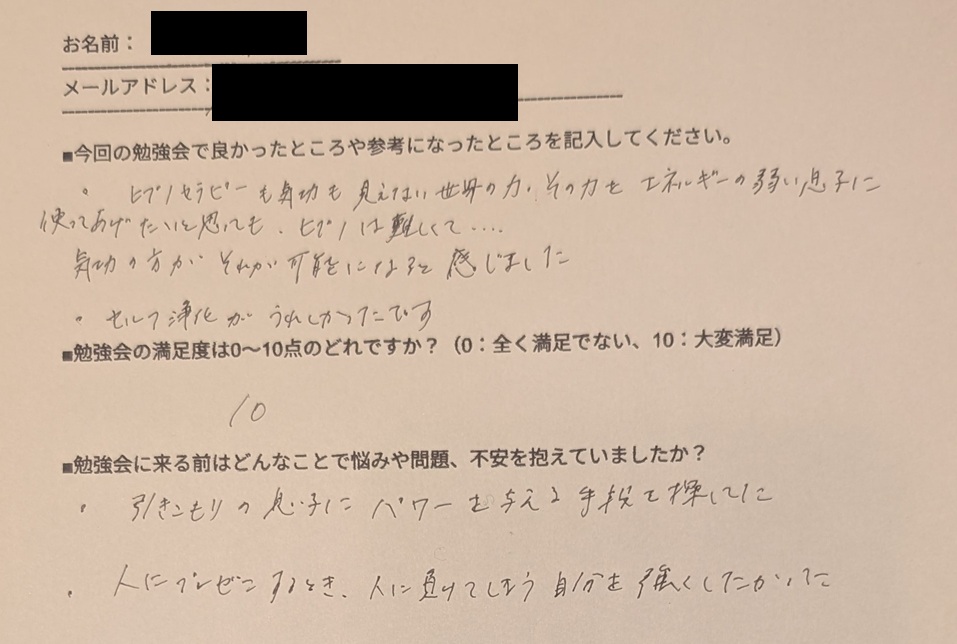 お名前：
メールアドレス：
■今回の勉強会で良かったところや参考になったところを記入してください。
・ ヒプノセラピーも気功も見えない世界の力、その力をエネルギーの弱い息子に
使ってあげたいと思っても、ヒプノは難しくて‥‥
気功の方が それが可能になると感じました
・ セルフ浄化が うれしかったです
■勉強会の満足度は0〜10点のどれですか？（0：全く満足でない、10：大変満足）
10
■勉強会に来る前はどんなことで悩みや問題、不安を抱えていましたか？
・ 引きこもりの息子にパワーを与える手段を探してた
・ 人にプレゼンするとき、人に負けてしまう自分を強くしたかった